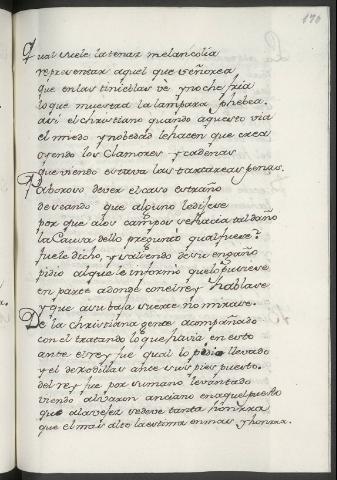 170
Qual suele la tenaz melancolia
representar aquel que señorea
que en las tinieblas vè y noche fria
lo que muestra la lampara phebea.
Asi el christiano quando aquesto via
el miedo y nobedad le hacen que crea
oyendo los Clamores y cadenas
que viendo estava las tartareas penas.
Paboroso de ver el caso estraño
deseando que alguno lo dijese
por que a los campos se hacia tal daño
la Causa dello preguntò qual fuese?
fuele dicho, y saliendo de su engaño
pidio al que le informò quelo pusiese
en parte adonde con el rey hablase
y que a su baja suerte no mirase.
De la christiana gente acompañado
con el tratando lo que havia en esto
ante el rey fue qual lo pidio llevado
y el de rodillas ante sus pies puesto.
del rey fue por su mano levantado
viendo al varon anciano en aquel puesto
que a la vejez se deve tanta honrra
que el mas alto la estima en mas, y honrra.